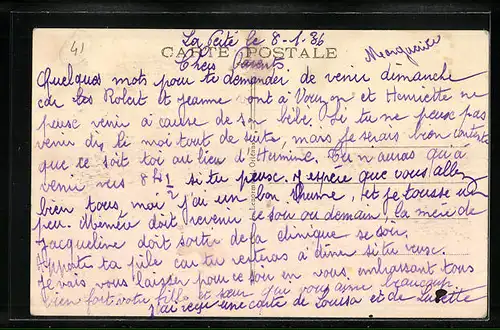 41
La Ferté le 8-1-36
CARTE POSTALE
Chers Parents
Marguerite
Quelques mots pour te demander de venir dimanche
car les Robert et Jeanne vont à Vouzon et Henriette ne
peuse venir à cause de son bébé. Si tu ne peuse pas
venir dis le moi tout de suite, mais je serais bien contente
que ce soit toi au lieu d'Hermine. Tu n'auras qu'à
venir vers 8h 1/2 si tu peuse. J'espère que vous allez
bien tous, moi j'ai un bon rhume, et je tousse un
peu. Mémère doit revenir ce soir ou demain, la mère de
Jacqueline doit sortir de la clinique ce soir.
Apporte ta pile car tu resteras à dîner si tu veuse.
Je vais vous laisser pour ce soir en vous embrassant tous
bien fort votre fille et sœur qui vous aime beaucoup.
J'ai reçu une carte de Louisa et de Lucette